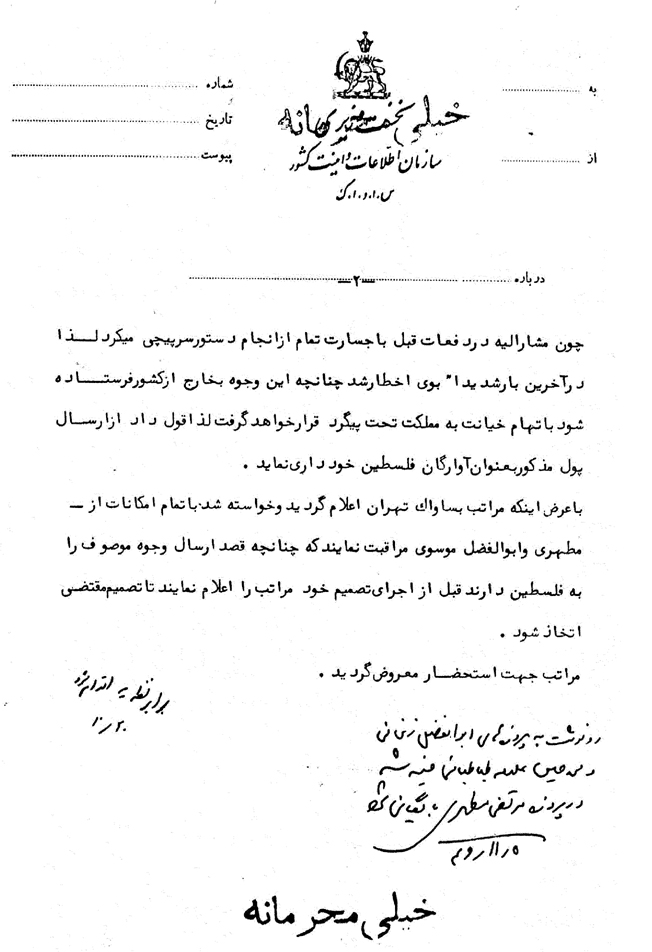 به
شماره
تاریخ
خیلی محرمانه
نخست وزیری
از
پیوست
سازمان اطلاعات و امنیت کشور
س.ا.و.ا.ک
درباره
-۲-
چون مشارالیه در دفعات قبل با جسارت تمام از انجام دستور سرپیچی میکرد لذا
در آخرین بار شدیدا" بوی اخطار شد چنانچه این وجوه بخارج از کشور فرستاده
شود باتهام خیانت به مملکت تحت پیگرد قرار خواهد گرفت لذا قول داد از ارسال
پول مذکور بعنوان آوارگان فلسطین خودداری نماید .
با عرض اینکه مراتب بساواك تهران اعلام گردید و خواسته شد با تمام امکانات از -
مطهری و ابوالفضل موسوی مراقبت نمایند که چنانچه قصد ارسال وجوه موصوف را
به فلسطین دارند قبل از اجرای تصمیم خود مراتب را اعلام نمایند تا تصمیم مقتضی
اتخاذ شود .
مراتب جهت استحضار معروض گردید .
برابر نظریه اقدام شود
رونوشت به پرونده های ابوالفضل زنجانی
علامه طباطبائی ضمیمه شد
در پرونده مرتضی مطهری بایگانی شود
خیلی محرمانه